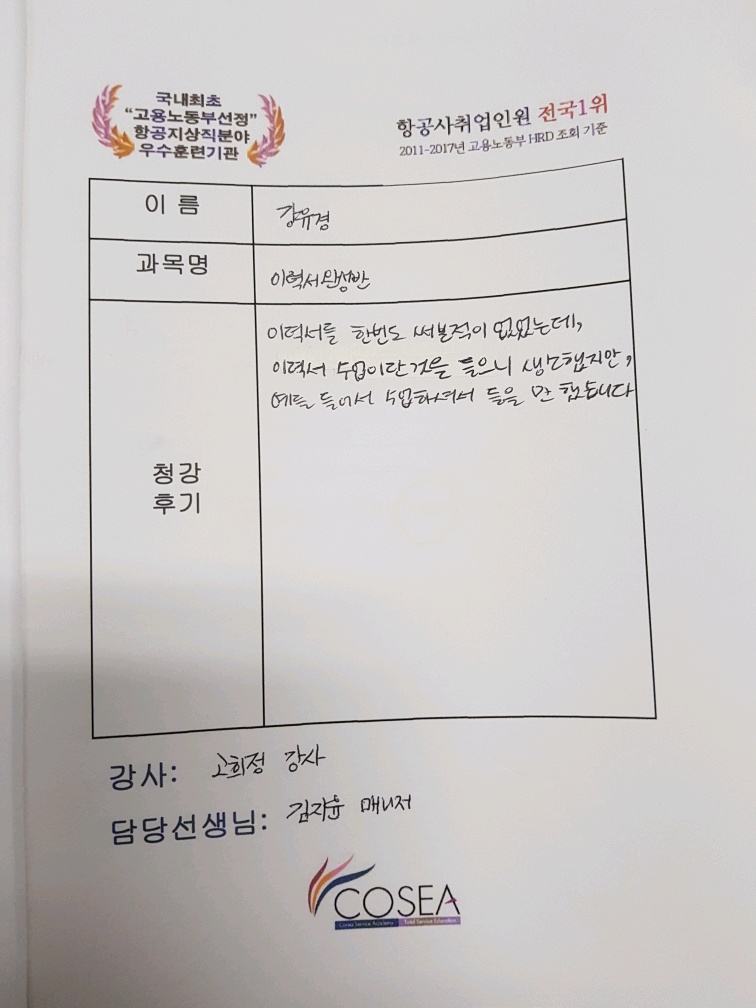 국내최초
"고용노동부선정"
항공지상직분야
우수훈련기관
항공사취업인원 전국1위
2011-2017년 고용노동부 HRD 조회 기준
이 름
강유경
과목명
이력서완성반
청강
후기
이력서를 한번도 써본적이 없었는데,
이력서 수업이란것을 들으니 생소했지만,
예를 들어서 수업하셔서 들을 만 했습니다
강사: 고희정 강사
담당선생님: 김지윤 매니저
COSEA
Corea Service Academy Total Service Education